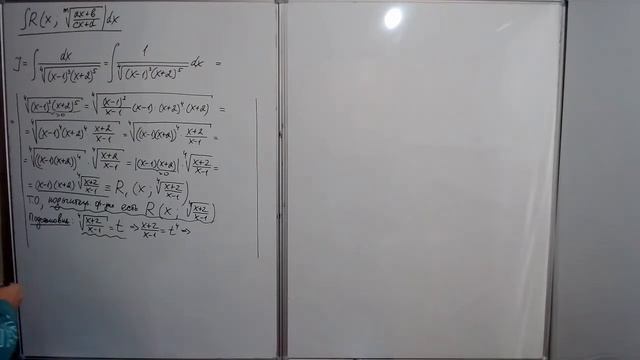 ∫R(x; ᵐ√((ax+b)/(cx+d)))dx
J = ∫ dx/⁴√((x-1)³(x+2)⁵) = ∫ 1/⁴√((x-1)³(x+2)⁵) dx =
= ⁴√((x-1)³(x+2)⁵) = ⁴√((x-1)³/(x-1) (x-1)·(x+2)⁴(x+2)) =
>0
= ⁴√((x-1)⁴(x+2)⁴ · (x+2)/(x-1)) = ⁴√(((x-1)(x+2))⁴ · (x+2)/(x-1)) =
= ⁴√(((x-1)(x+2))⁴) · ⁴√((x+2)/(x-1)) = |(x-1)(x+2)| · ⁴√((x+2)/(x-1)) =
>0
= (x-1)(x+2) ⁴√((x+2)/(x-1)) ≡ R₁(x; ⁴√((x+2)/(x-1)))
Т.О, есть R(x; ⁴√((x+2)/(x-1)))
Подстановка: ⁴√((x+2)/(x-1)) = t ⇒ (x+2)/(x-1) = t⁴ ⇒